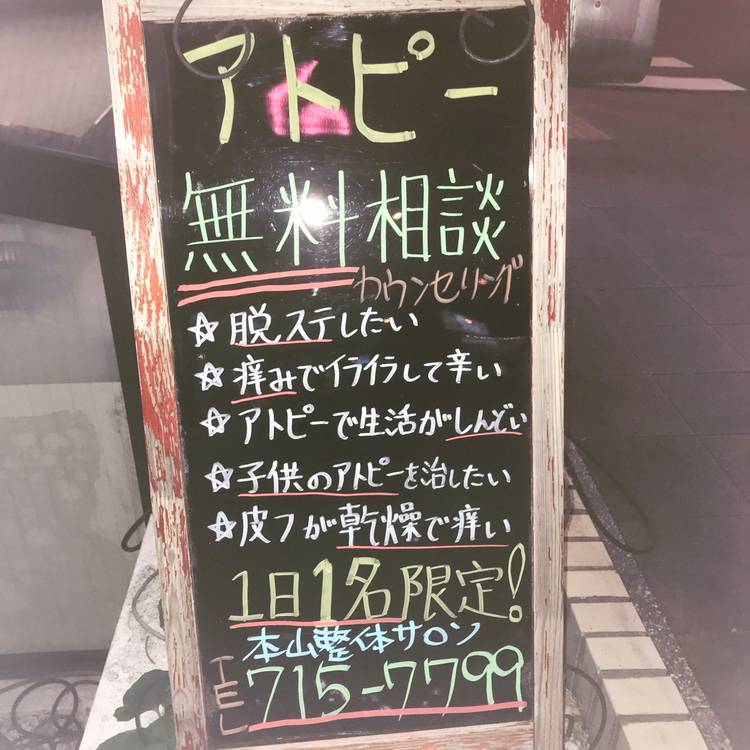 アトピー
無料相談
カウンセリング
☆脱ステしたい
☆痒みでイライラして辛い
☆アトピーで生活がしんどい
☆子供のアトピーを治したい
☆皮フが乾燥で痒い
1日1名限定!
本山整体サロン
TEL 715-7799